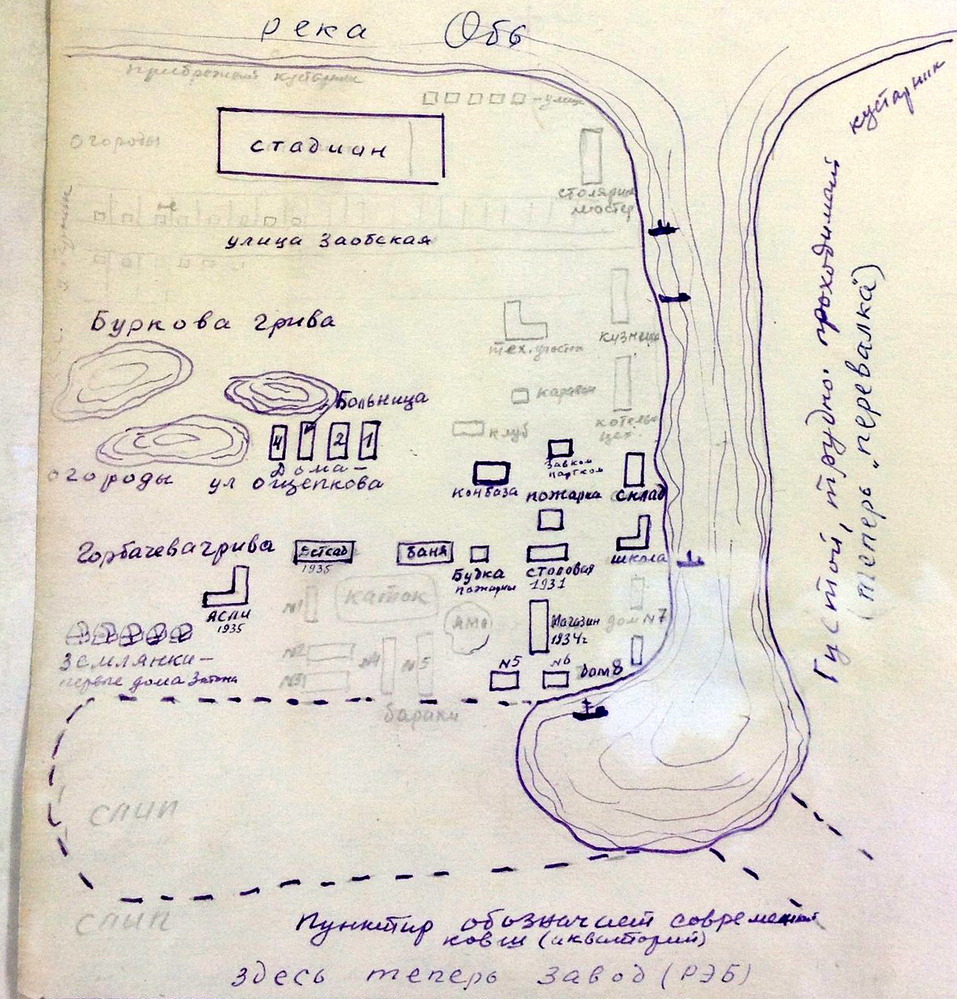 река Обь
прибрежный кустарник
кустарник
- улица
огороды
стадиан
столярн
мастер
улица Заобская
Буркова грива
тех. участок
кузница
караван
Больница
клуб
котельн
цех.
4
2
1
огороды
Дома-
ул Ощепкова
Завком
партком
конбаза
пожарка
склад
Густой, трудно. проходимый
(теперь „перевалка")
Горбачева грива
Детсад
1935
баня
Будка
пожарки
столовая
1931
школа
ясли
1935
N1
каток
яма
Магазин
1934г
дом N7
N2
N3
N4
N5
Землянки-
первые дома Затона
N5
N6
дом 8
бараки
слип
слип
Пунктир обозначает современ
ковш (акваторий)
Здесь теперь завод (РЭБ)